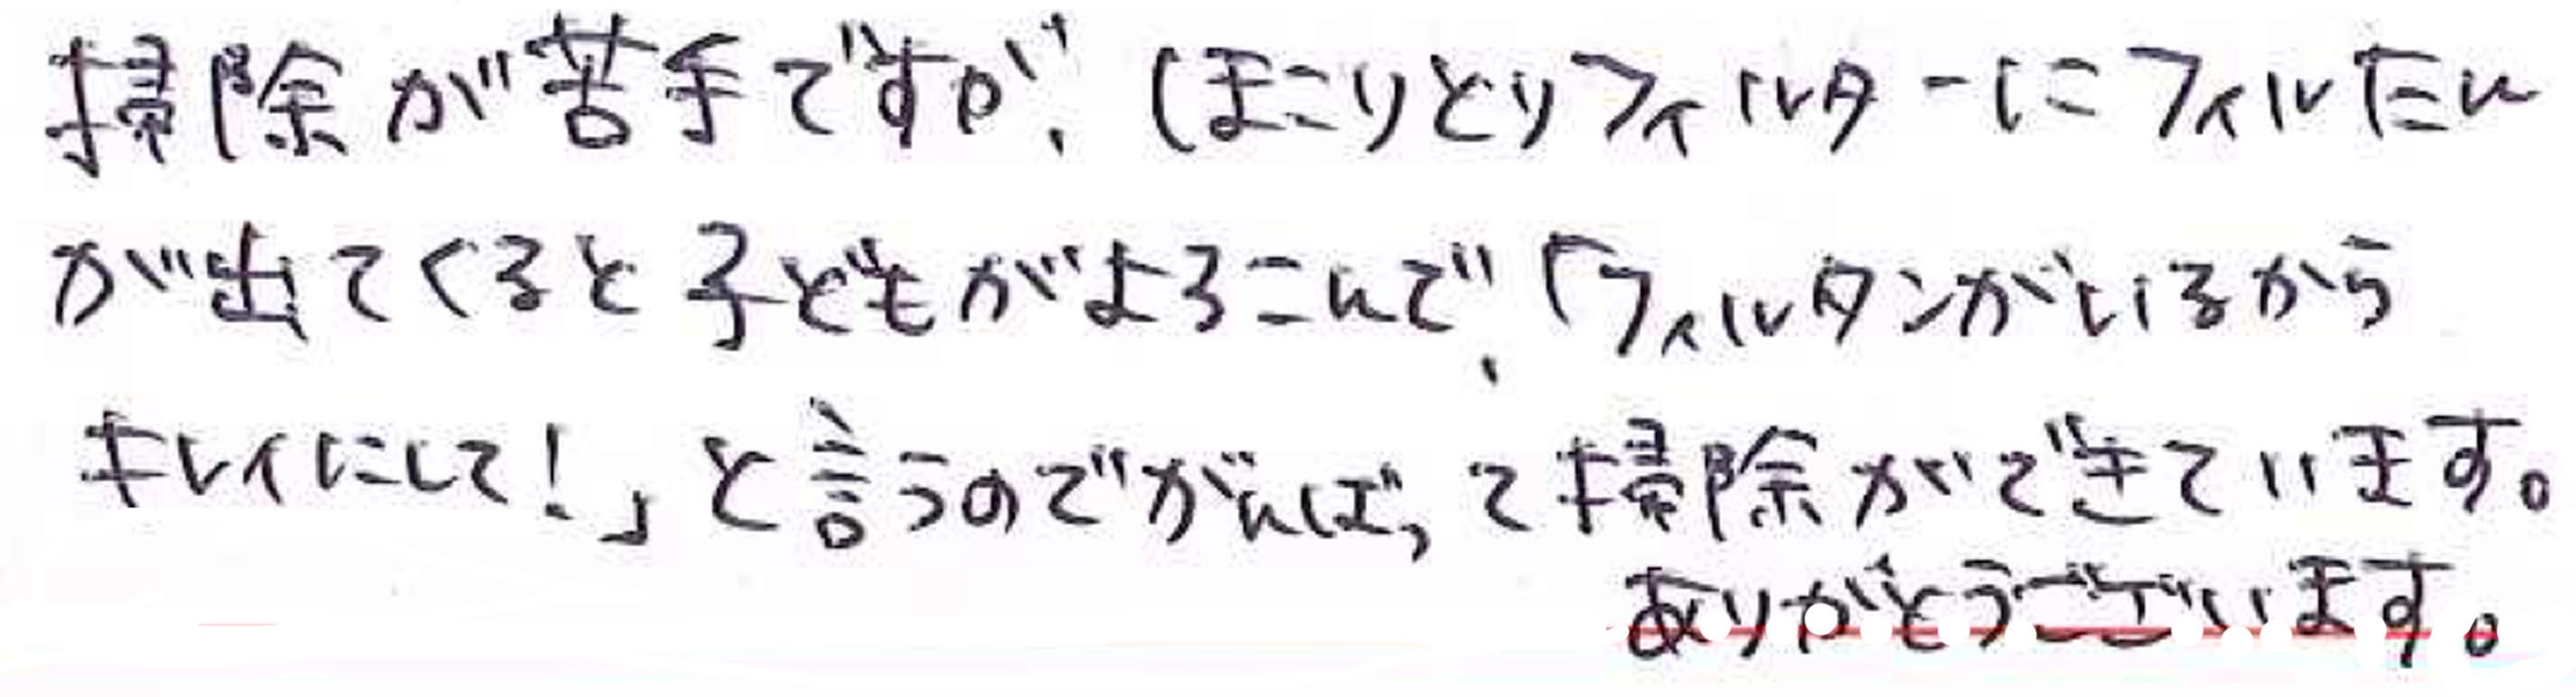 掃除が苦手ですが、ほこりとりフィルターにフィルたん
が出てくると子どもがよろこんで、「フィルタンがいるから
キレイにして!」と言うのでがんばって掃除ができています。
ありがとうございます。